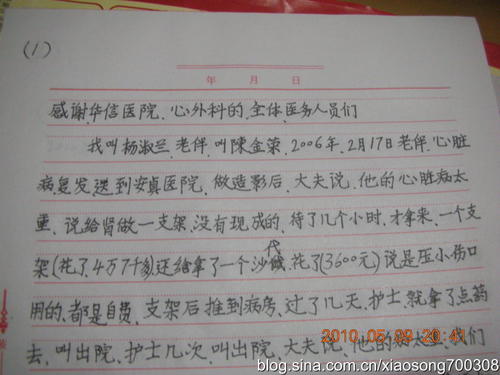 (1)
年 月 日
感谢华信医院、心外科的、全体医务人员们
我叫杨淑兰、老伴、叫陳金荣、2006年、2月17日老伴、心脏
病复发、送到安贞医院、做造影后、大夫说、他的心脏病太
重、说给肾做一支架、没有现成的、待了几个小时、才拿来、一个支
架(花了、4万7千多)还给拿了一个沙袋、花了(3600元)说是压小伤口
用的、都是自费、支架后推到病房、过了几天、护士、就拿了点药
去、叫出院、护士几次、叫出院、大夫说、他的病太重、我们
2010.05.
blog.sina.com.cn/xiaosong700308